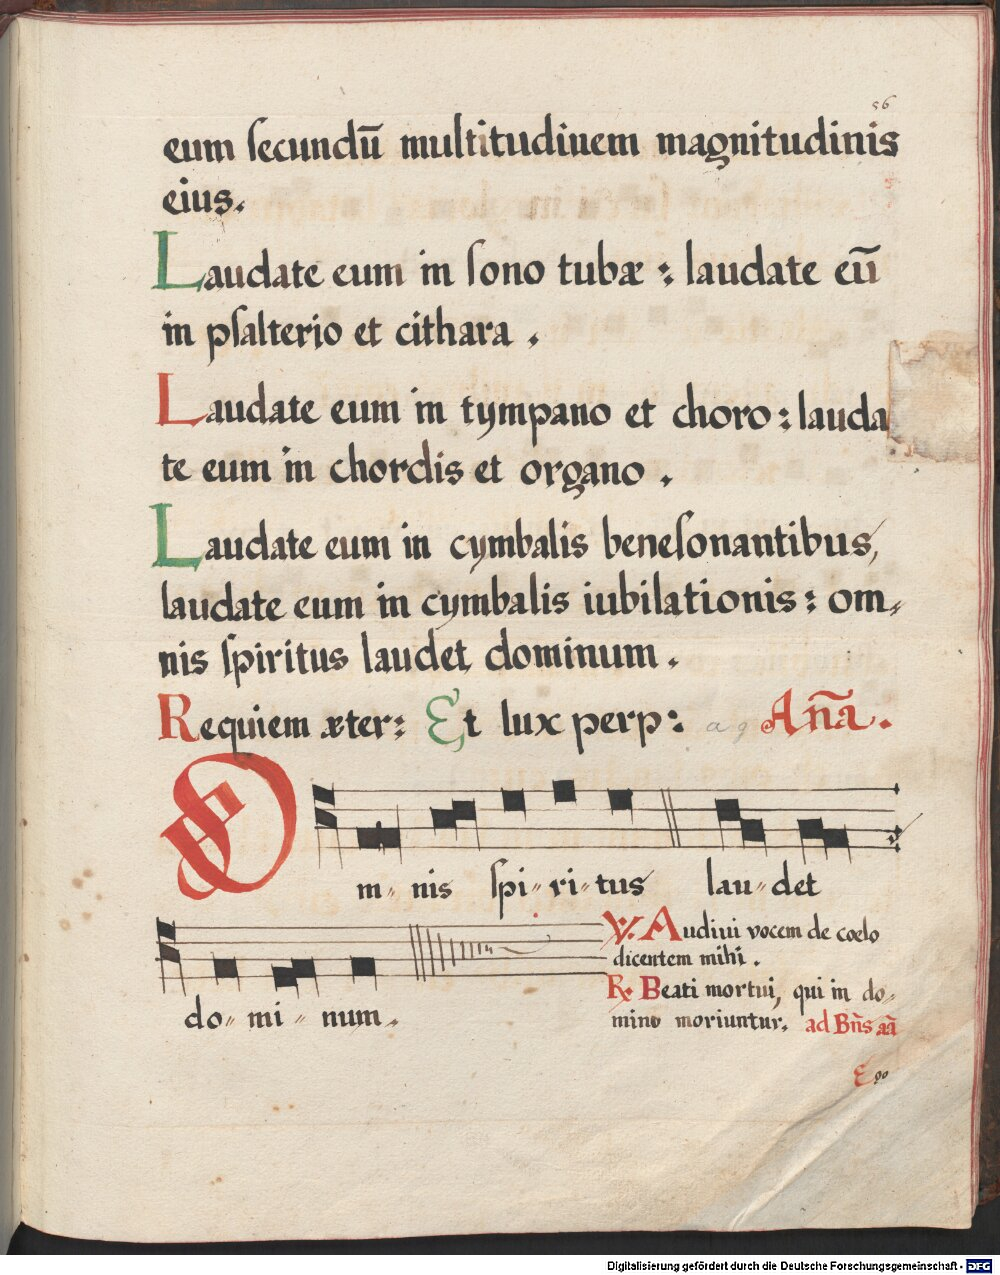 56
eum ſecundū multitudinem magnitudinis
eius.
Laudate eum in ſono tubæ : laudate eū
in pſalterio et cithara .
Laudate eum in tympano et choro : lauda
te eum in chordis et organo .
Laudate eum in cymbalis beneſonantibus,
laudate eum in cymbalis iubilationis : om-
nis ſpiritus laudet dominum .
Requiem æter: Et lux perp: a g Añã .
Om- nis ſpi- ri- tus lau- det
do- mi- num.
℣. Audiui vocem de cœlo
dicentem mihi .
℟. Beati mortui, qui in do-
mino moriuntur. ad Bñs aã
Ego
Digitalisierung gefördert durch die Deutsche Forschungsgemeinschaft - DFG